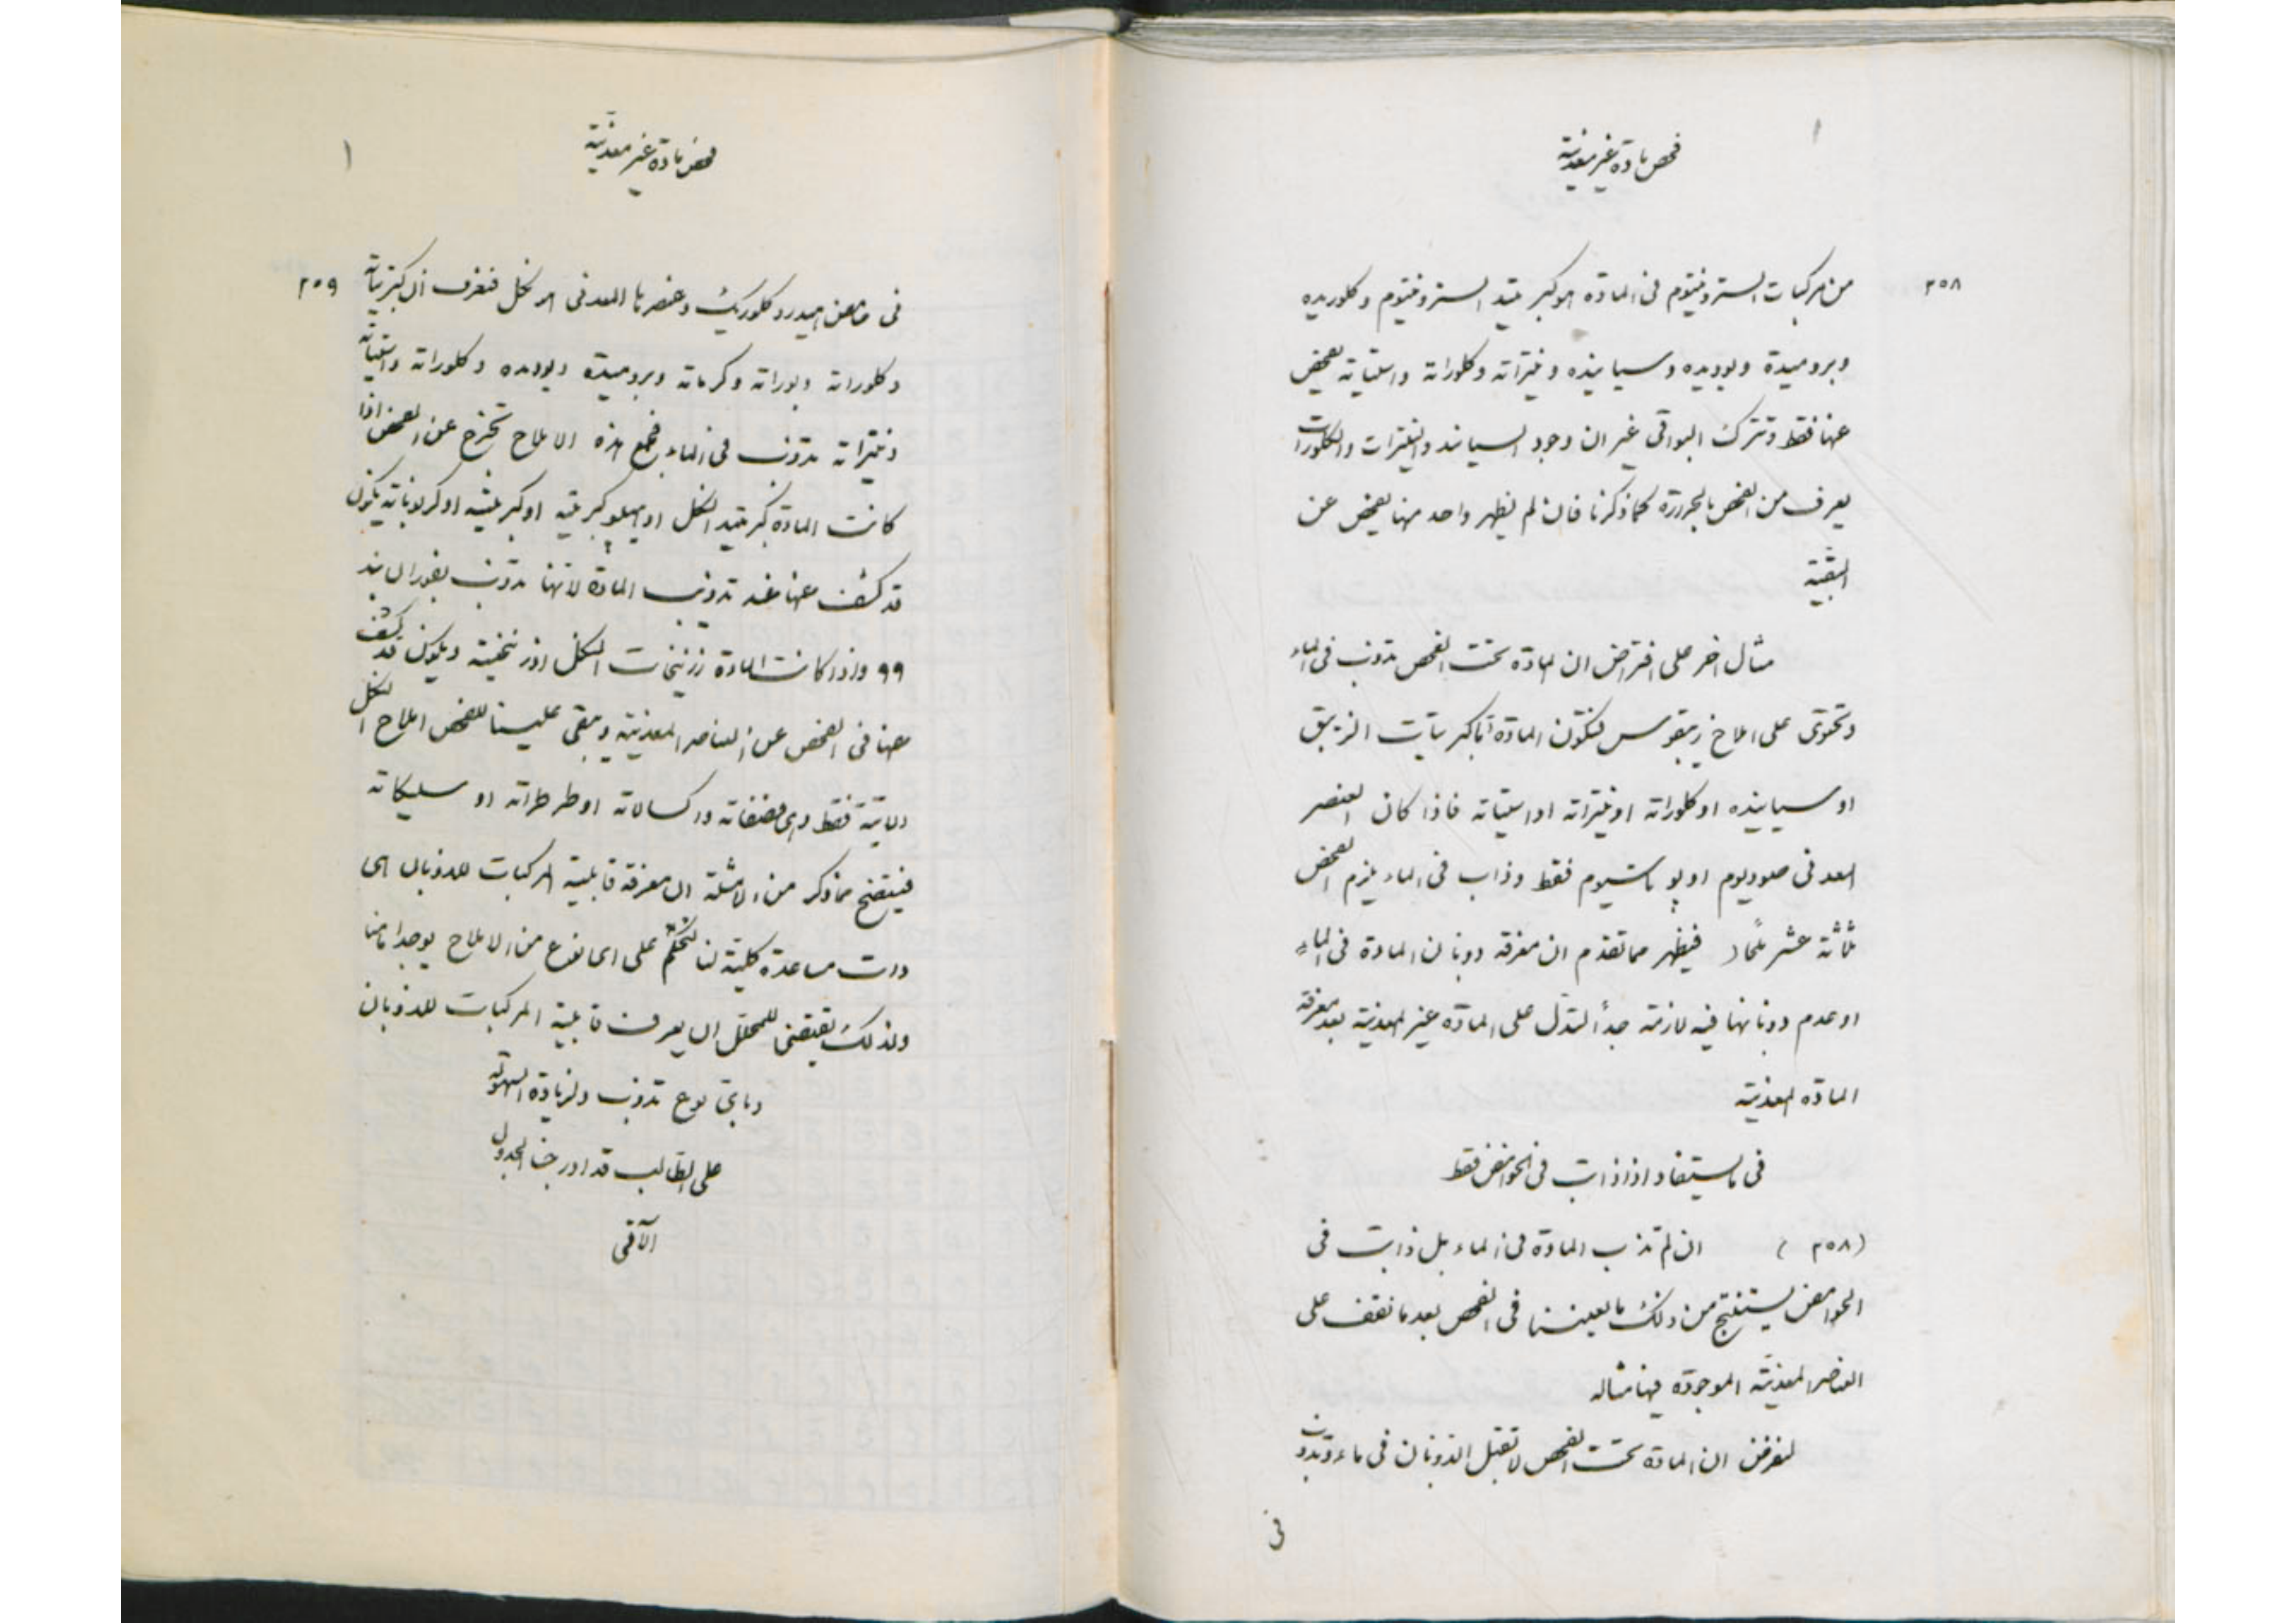 فحص مادة غير معدنية
٢٥٨
من مركبات السترونتيوم فى المادة هو كبريتيد السترونتيوم وكلوريده
وبروميدة ويوديده وسيانيده ونيتراته وكلوراته واستيتاته يفحص
عنها فقط وتترك البواقى غير ان وجود السيانيد والنيترات والكلورات
يعرف من الفحص بالحرارة كما ذكرنا فان لم يظهر واحد منها يفحص عن
البقية
مثال اخر على افتراض ان المادة تحت الفحص تذوب فى الماء
وتحتوى على املاح زيبقوس فتكون المادة اما كبريتات الزيبق
او سيانيده او كلوراته او نيتراته او استيتاته فاذا كان العنصر
المعدنى صوديوم او بوتاسيوم فقط وذاب فى الماء يلزم الفحص
ثلاثة عشر ملحا فيظهر مما تقدم ان معرفة ذوبان المادة فى الماء
او عدم ذوبانها فيه لازمة جدأ لتدل على المادة غير المعدنية بعد معرفة
المادة المعدنية
فى ما يستفاد اذا ذابت فى الحوامض فقط
(٢٥٨) ان لم تذب المادة فى الماء بل ذابت فى
الحوامض يستنتج من ذلك ما يعيننا فى الفحص بعد ما نقف على
العناصر المعدنية الموجودة فيها مثاله
لنفرض ان المادة تحت الفحص لا تقبل الذوبان فى ماء وتذوب
فى
فحص مادة غير معدنية
٢٥٩
فى حامض الهيدروكلوريك وعنصرها المعدنى هو نكل فنعرف ان كبريتاته
وكلوراته وبوراته وكرماته وبروميدة ويوديده وكلوراته واستيتاته
ونيتراته تذوب فى الماء فجميع هذه الاملاح تخرج عن الفحص اذا
كانت المادة كبريتيد النكل او هيبوكبريتيه او كبريتيته او كربوناته يكون
قد كشف عنها عند تذويب المادة لانها تذوب بفوران بند
٩٩ واذا كانت المادة زرنيخات النكل او زرنيخيته ويكون قد كشف
عنها فى الفحص عن العناصر المعدنية ويبقى علينا للفحص املاح النكل
الاتية فقط وهى فصفاته واكسالاته او طرطراته او سليكاته
فيتضح مما ذكر من الامثلة ان معرفة قابلية المركبات للذوبان هى
ذات مساعدة كلية لنا لنحكم على اى نوع من الاملاح يوجد امامنا
ولذلك يقتضى للمحلل ان يعرف قابلية المركبات للذوبان
وباى نوع تذوب ولزيادة السهولة
على الطالب قد ادرجنا الجدول
الآتى